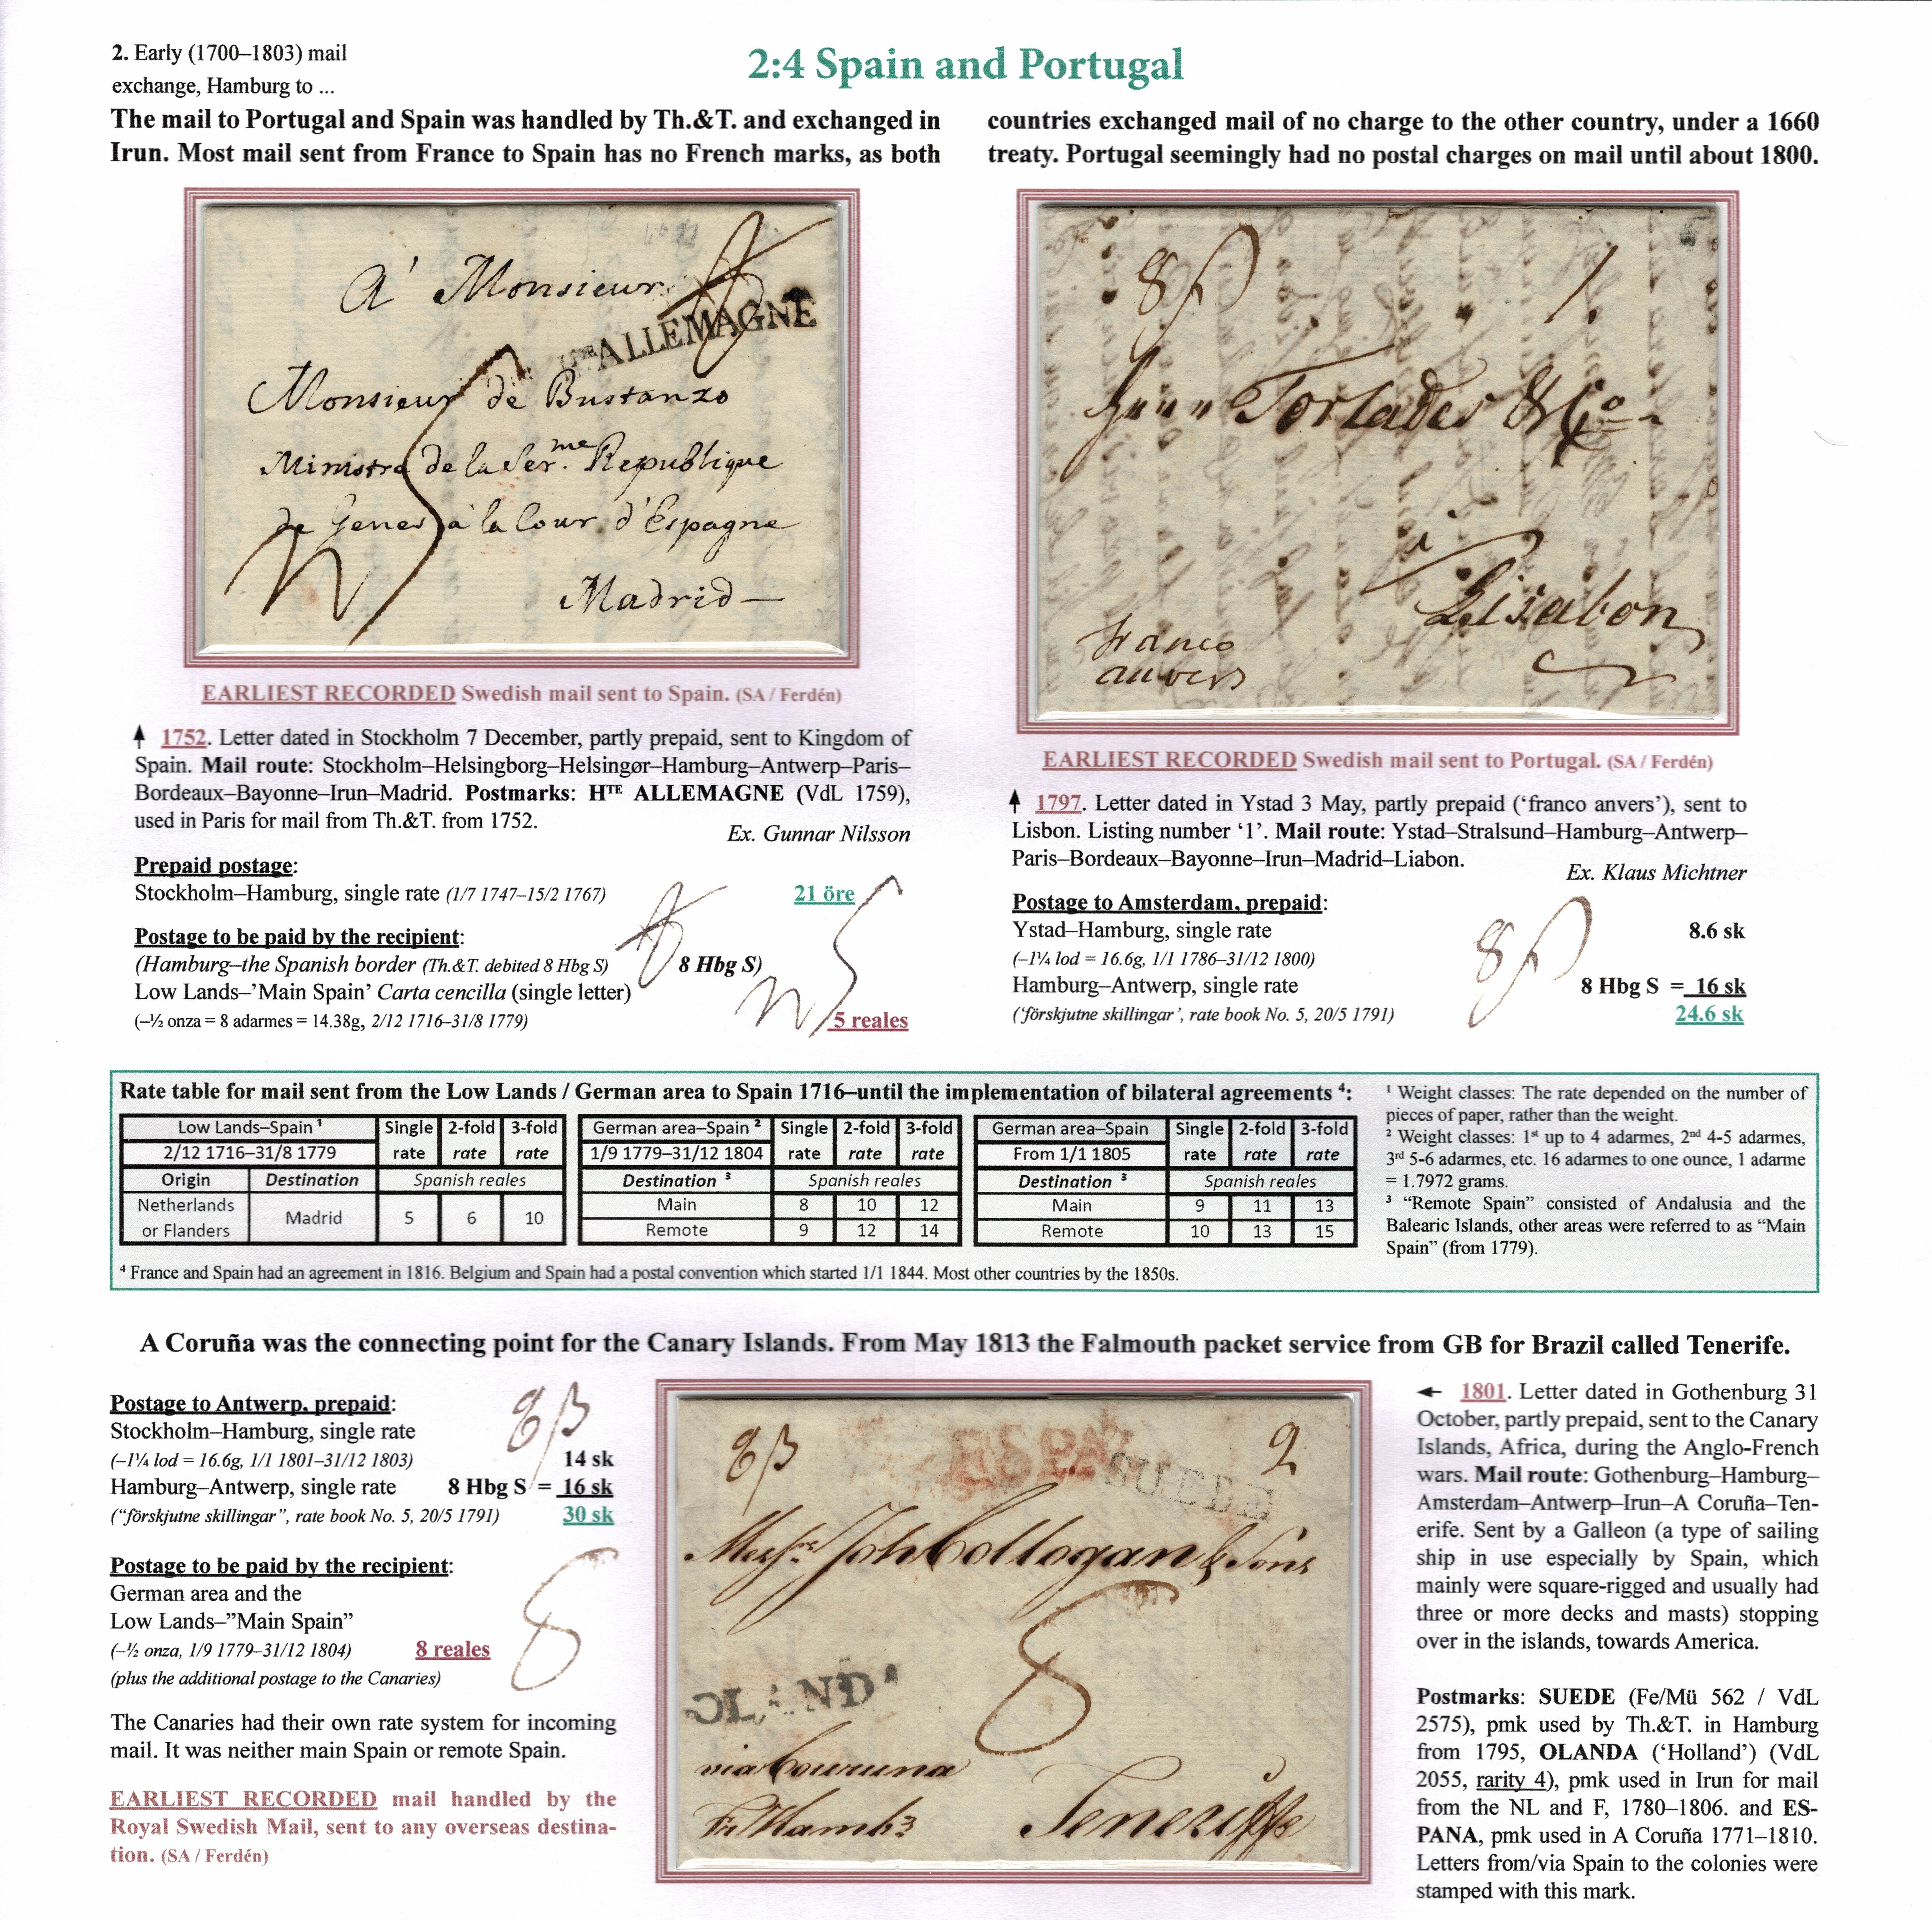 2. Early (1700–1803) mail
exchange, Hamburg to ...
2:4 Spain and Portugal
The mail to Portugal and Spain was handled by Th.&T. and exchanged in
Irun. Most mail sent from France to Spain has no French marks, as both
countries exchanged mail of no charge to the other country, under a 1660
treaty. Portugal seemingly had no postal charges on mail until about 1800.
A' Monsieur
ALLEMAGNE
Monsieur de Bustanzo
Ministre de la Ser.me Republique
de Genes à la Cour d'Espagne
Madrid—
EARLIEST RECORDED Swedish mail sent to Spain. (SA / Ferdén)
↑ 1752. Letter dated in Stockholm 7 December, partly prepaid, sent to Kingdom of
Spain. Mail route: Stockholm–Helsingborg–Helsingør–Hamburg–Antwerp–Paris–
Bordeaux–Bayonne–Irun–Madrid. Postmarks: HTE ALLEMAGNE (VdL 1759),
used in Paris for mail from Th.&T. from 1752.
Ex. Gunnar Nilsson
Prepaid postage:
Stockholm–Hamburg, single rate (1/7 1747–15/2 1767) 21 öre
Postage to be paid by the recipient:
(Hamburg–the Spanish border (Th.&T. debited 8 Hbg S) 8 Hbg S)
Low Lands–’Main Spain’ Carta cencilla (single letter)
(–½ onza = 8 adarmes = 14.38g, 2/12 1716–31/8 1779) 5 reales
1.
Torlades & Co
a
Lisabon
franco
anvers
EARLIEST RECORDED Swedish mail sent to Portugal. (SA / Ferdén)
↑ 1797. Letter dated in Ystad 3 May, partly prepaid (‘franco anvers’), sent to
Lisbon. Listing number ‘1’. Mail route: Ystad–Stralsund–Hamburg–Antwerp–
Paris–Bordeaux–Bayonne–Irun–Madrid–Liabon.
Ex. Klaus Michtner
Postage to Amsterdam, prepaid:
Ystad–Hamburg, single rate 8.6 sk
(–1¼ lod = 16.6g, 1/1 1786–31/12 1800)
Hamburg–Antwerp, single rate 8 Hbg S = 16 sk
(‘förskjutne skillingar’, rate book No. 5, 20/5 1791) 24.6 sk
Rate table for mail sent from the Low Lands / German area to Spain 1716–until the implementation of bilateral agreements 4:
Low Lands–Spain 1 Single 2-fold 3-fold
2/12 1716–31/8 1779 rate rate rate
Origin Destination Spanish reales
Netherlands
or Flanders Madrid 5 6 10
German area–Spain 2 Single 2-fold 3-fold
1/9 1779–31/12 1804 rate rate rate
Destination 3 Spanish reales
Main 8 10 12
Remote 9 12 14
German area–Spain Single 2-fold 3-fold
From 1/1 1805 rate rate rate
Destination 3 Spanish reales
Main 9 11 13
Remote 10 13 15
1 Weight classes: The rate depended on the number of
pieces of paper, rather than the weight.
2 Weight classes: 1st up to 4 adarmes, 2nd 4-5 adarmes,
3rd 5-6 adarmes, etc. 16 adarmes to one ounce, 1 adarme
= 1.7972 grams.
3 “Remote Spain” consisted of Andalusia and the
Balearic Islands, other areas were referred to as “Main
Spain” (from 1779).
4 France and Spain had an agreement in 1816. Belgium and Spain had a postal convention which started 1/1 1844. Most other countries by the 1850s.
A Coruña was the connecting point for the Canary Islands. From May 1813 the Falmouth packet service from GB for Brazil called Tenerife.
Postage to Antwerp, prepaid:
Stockholm–Hamburg, single rate
(–1¼ lod = 16.6g, 1/1 1801–31/12 1803) 14 sk
Hamburg–Antwerp, single rate 8 Hbg S = 16 sk
(“förskjutne skillingar”, rate book No. 5, 20/5 1791) 30 sk
Postage to be paid by the recipient:
German area and the
Low Lands–”Main Spain”
(–½ onza, 1/9 1779–31/12 1804) 8 reales
(plus the additional postage to the Canaries)
The Canaries had their own rate system for incoming
mail. It was neither main Spain or remote Spain.
EARLIEST RECORDED mail handled by the
Royal Swedish Mail, sent to any overseas destina-
tion. (SA / Ferdén)
ESPA
SUEDE
2
Messrs Joh Collogan & Sons
8
OLANDA
via Couruna
Teneriffe
← 1801. Letter dated in Gothenburg 31
October, partly prepaid, sent to the Canary
Islands, Africa, during the Anglo-French
wars. Mail route: Gothenburg–Hamburg–
Amsterdam–Antwerp–Irun–A Coruña–Ten-
erife. Sent by a Galleon (a type of sailing
ship in use especially by Spain, which
mainly were square-rigged and usually had
three or more decks and masts) stopping
over in the islands, towards America.
Postmarks: SUEDE (Fe/Mü 562 / VdL
2575), pmk used by Th.&T. in Hamburg
from 1795, OLANDA (‘Holland’) (VdL
2055, rarity 4), pmk used in Irun for mail
from the NL and F, 1780–1806. and ES-
PANA, pmk used in A Coruña 1771–1810.
Letters from/via Spain to the colonies were
stamped with this mark.